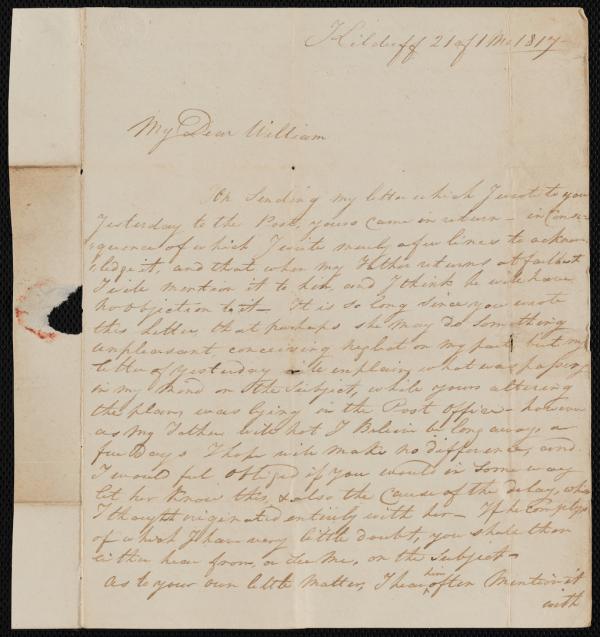 Kilduff 21 of 1 Mo 1817
My Dear William
On Sending my letter which I wrote to you
Yesterday to the Post, yours came in return - in Conse-
quence of which I write merely a few lines to acknow
ledge it, and that when my Father returns at farthest
I will mention it to him, and I think he will have
no objection to it - It is so long since you wrote
this Letter, that perhaps she may do Something
unpleasant, conceiving neglect on my part but my
letter of yesterday will explain what was passing
in my mind on the Subject, while yours altering
the plan, was lying in the Post Office - however
as my Father will not I Believe be long away, a
few Days I hope will make no difference, and
I would feel Obliged if you would in some way
let her Know this, & also the Cause of the delay, which
I thought originated entirely with her - If he complys
of which I have very little doubt, you shall then
either hear from, or see me, on the Subject -
As to your own little Matter, I hear him often Mention it
with